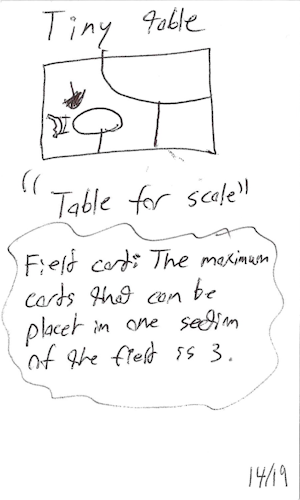 Tiny table
"Table for scale"
Field card: The maximum
cards that can be
placet in one section
of the field is 3.
14/19